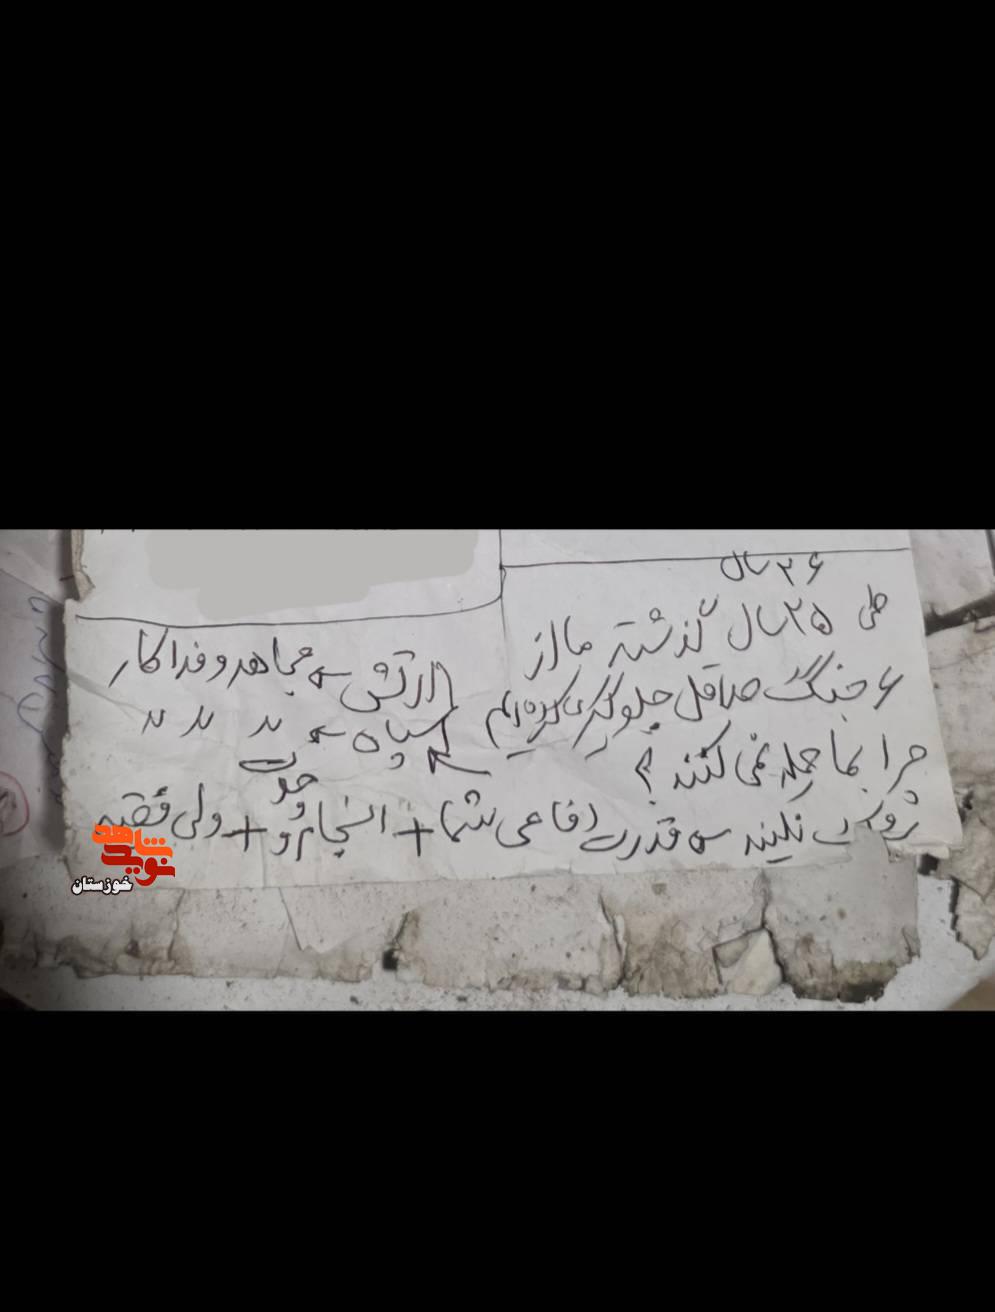 ۲۶ سال
طی ۲۵ سال گذشته ما از
۶ جنگ حداقل جلوگیری کرده‌ایم
چرا بما حمله نمی کنند؟
قدرت دفاعی شما + انسجام + ولی فقیه
ارتش ← مجاهد و فداکار
سپاه ← 〃 〃 〃
نوید شاهد
خوزستان